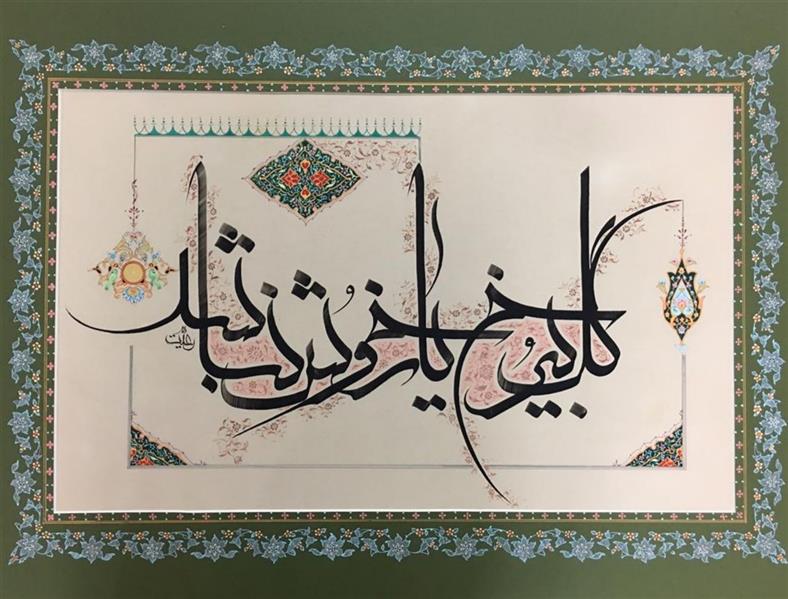 گل بی رخ یار خوش نباشد